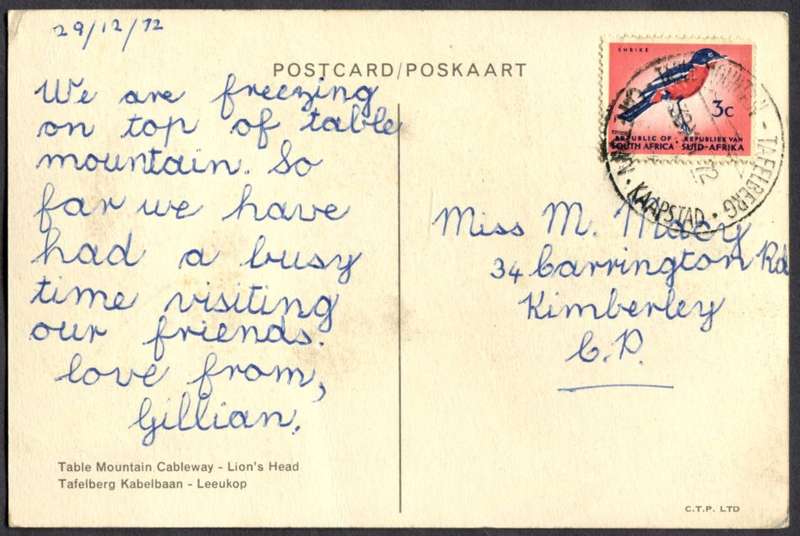 29/12/72
POSTCARD/POSKAART
We are freezing
on top of table
mountain. So
far we have
had a busy
time visiting
our friends.
love from,
Gillian.
Table Mountain Cableway - Lion's Head
Tafelberg Kabelbaan - Leeukop
SHRIKE
3c
REPUBLIC OF SOUTH AFRICA · REPUBLIEK VAN SUID-AFRIKA
TABLE MOUNTAIN - TAFELBERG · KAAPSTAD ·
Miss M. Macy
34 Carrington Rd
Kimberley
C.P.
C.T.P. LTD